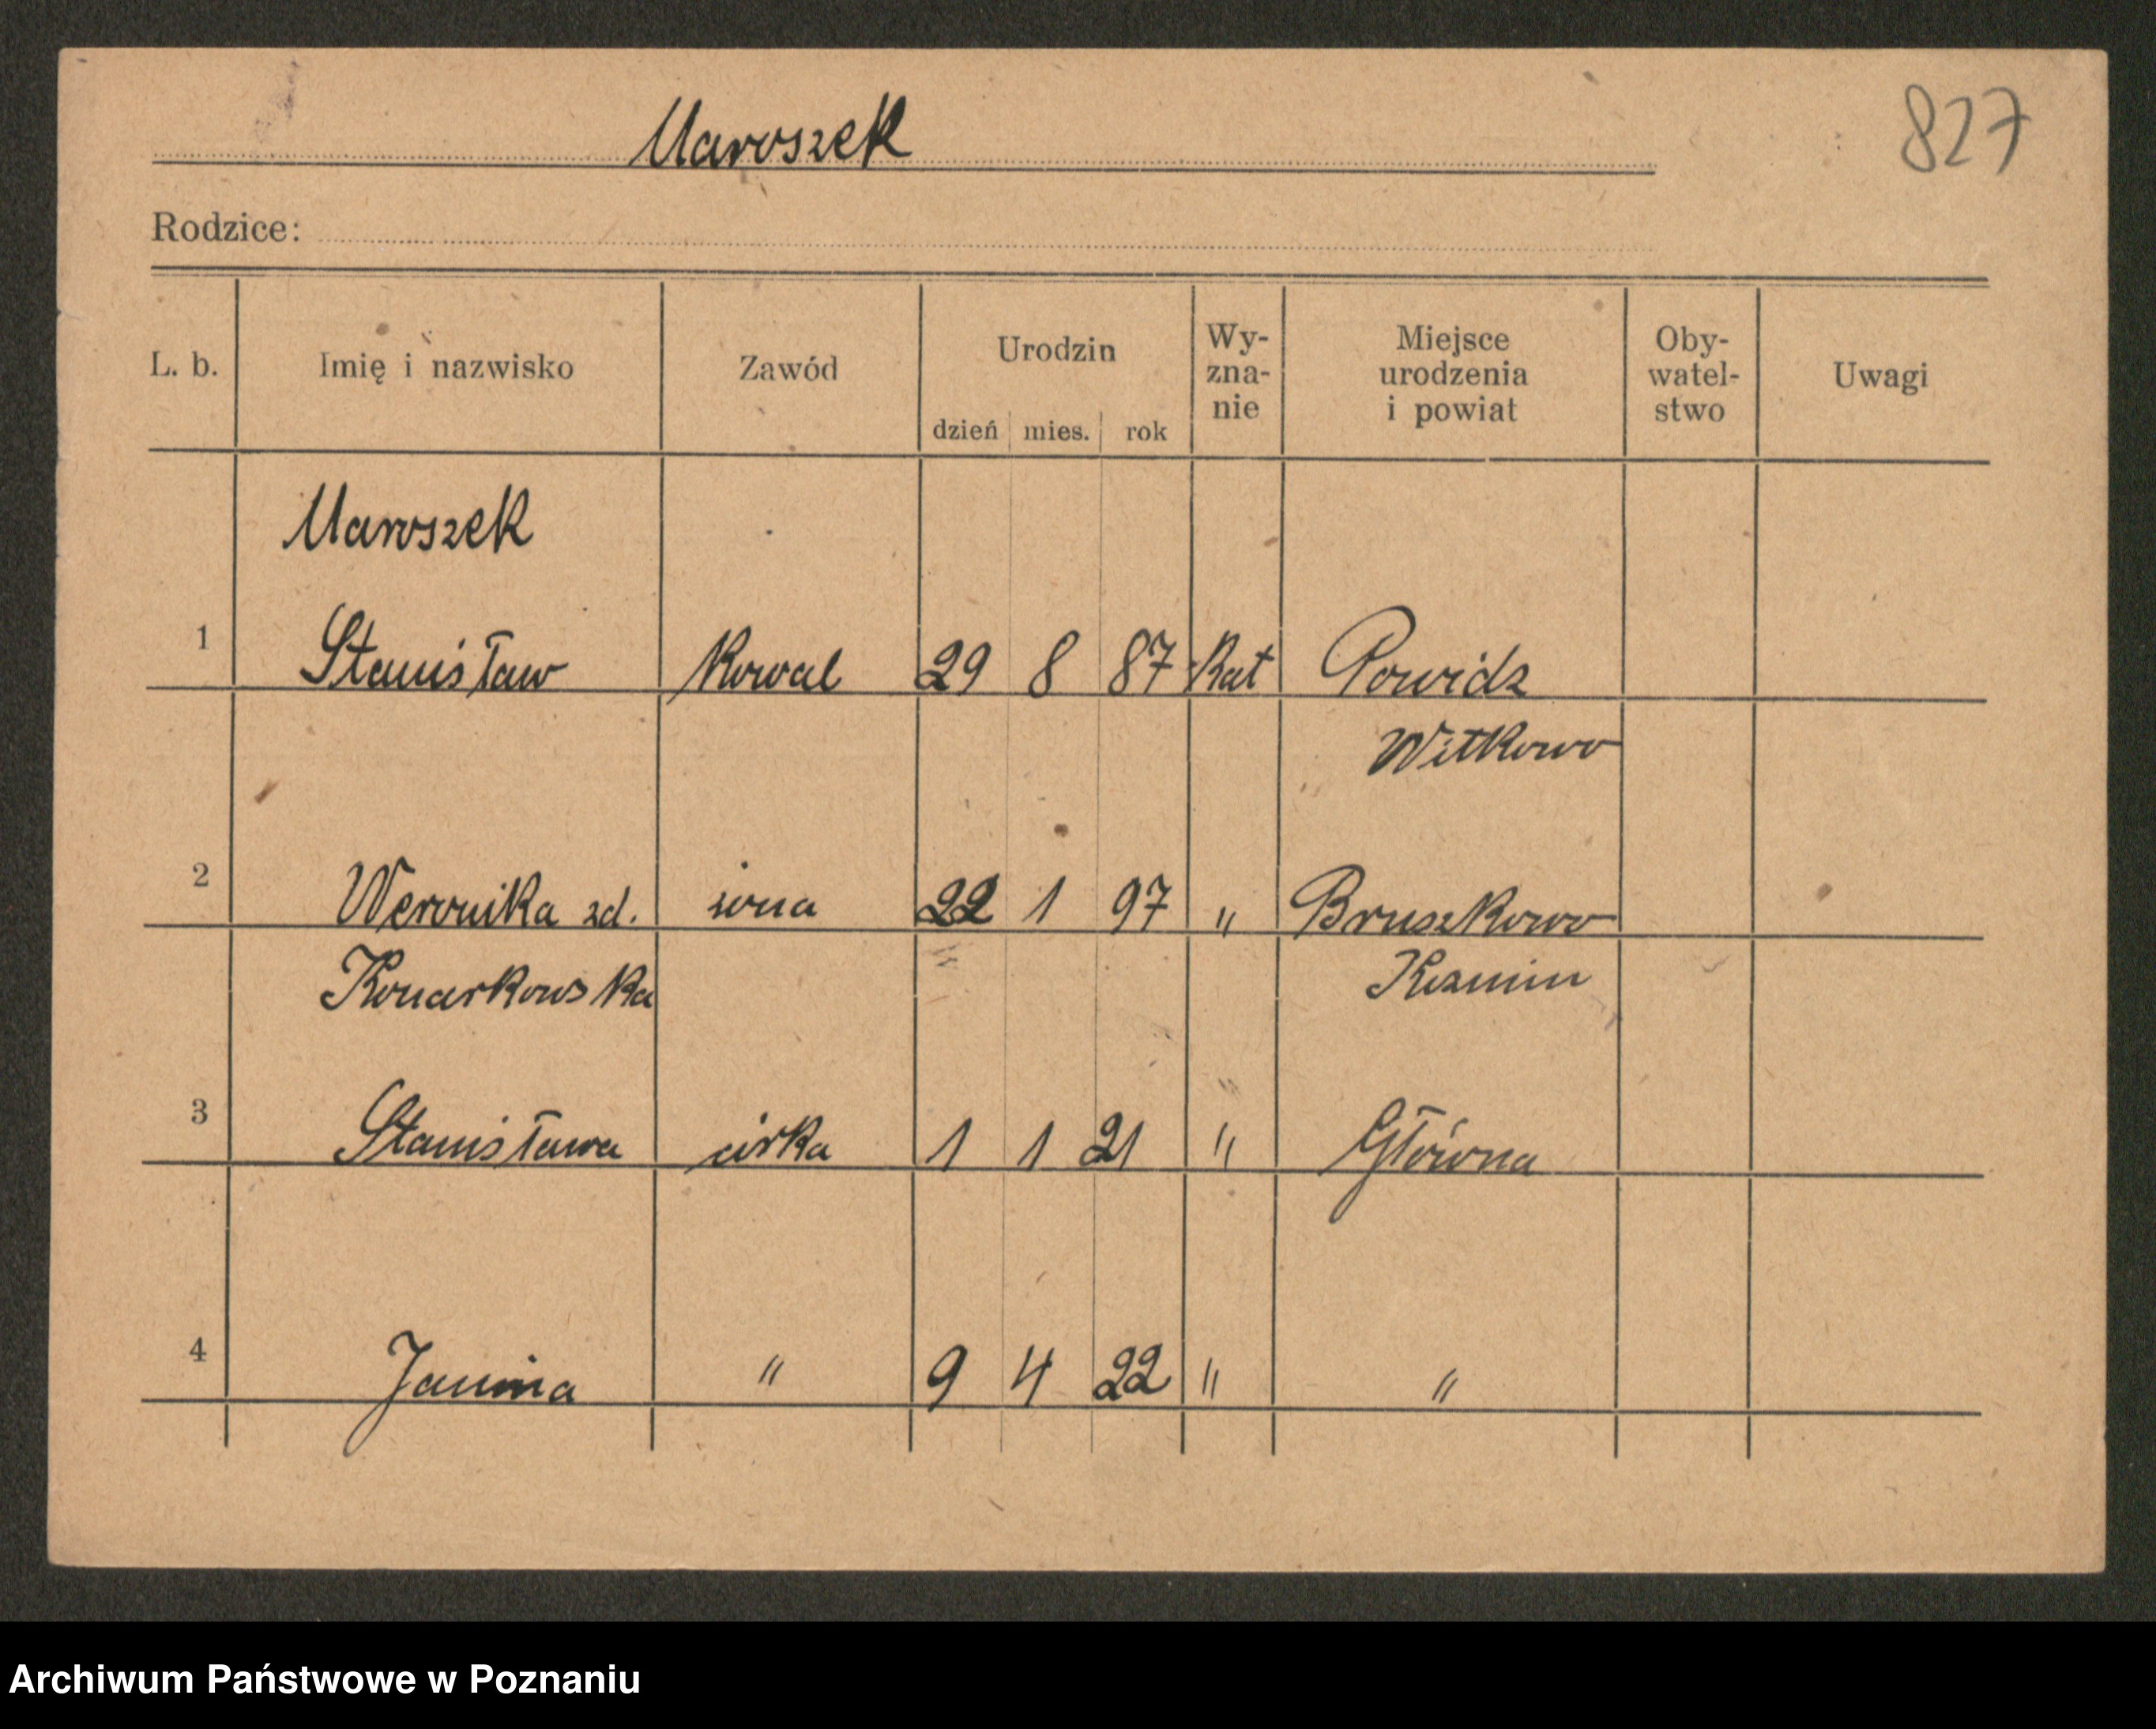 827
Maroszek
Rodzice:
L. b. Imię i nazwisko Zawód Urodzin dzień mies. rok Wy-zna-nie Miejsce urodzenia i powiat Oby-watel-stwo Uwagi
Maroszek
1 Stanisław Kowal 29 8 87 Kat Powidz
Witkowo
2 Weronika zd. żona 22 1 97 " Bruszkowo
Konarkowska
3 Stanisława córka 1 1 21 " Główna
4 Janina " 9 4 22 " "
Archiwum Państwowe w Poznaniu